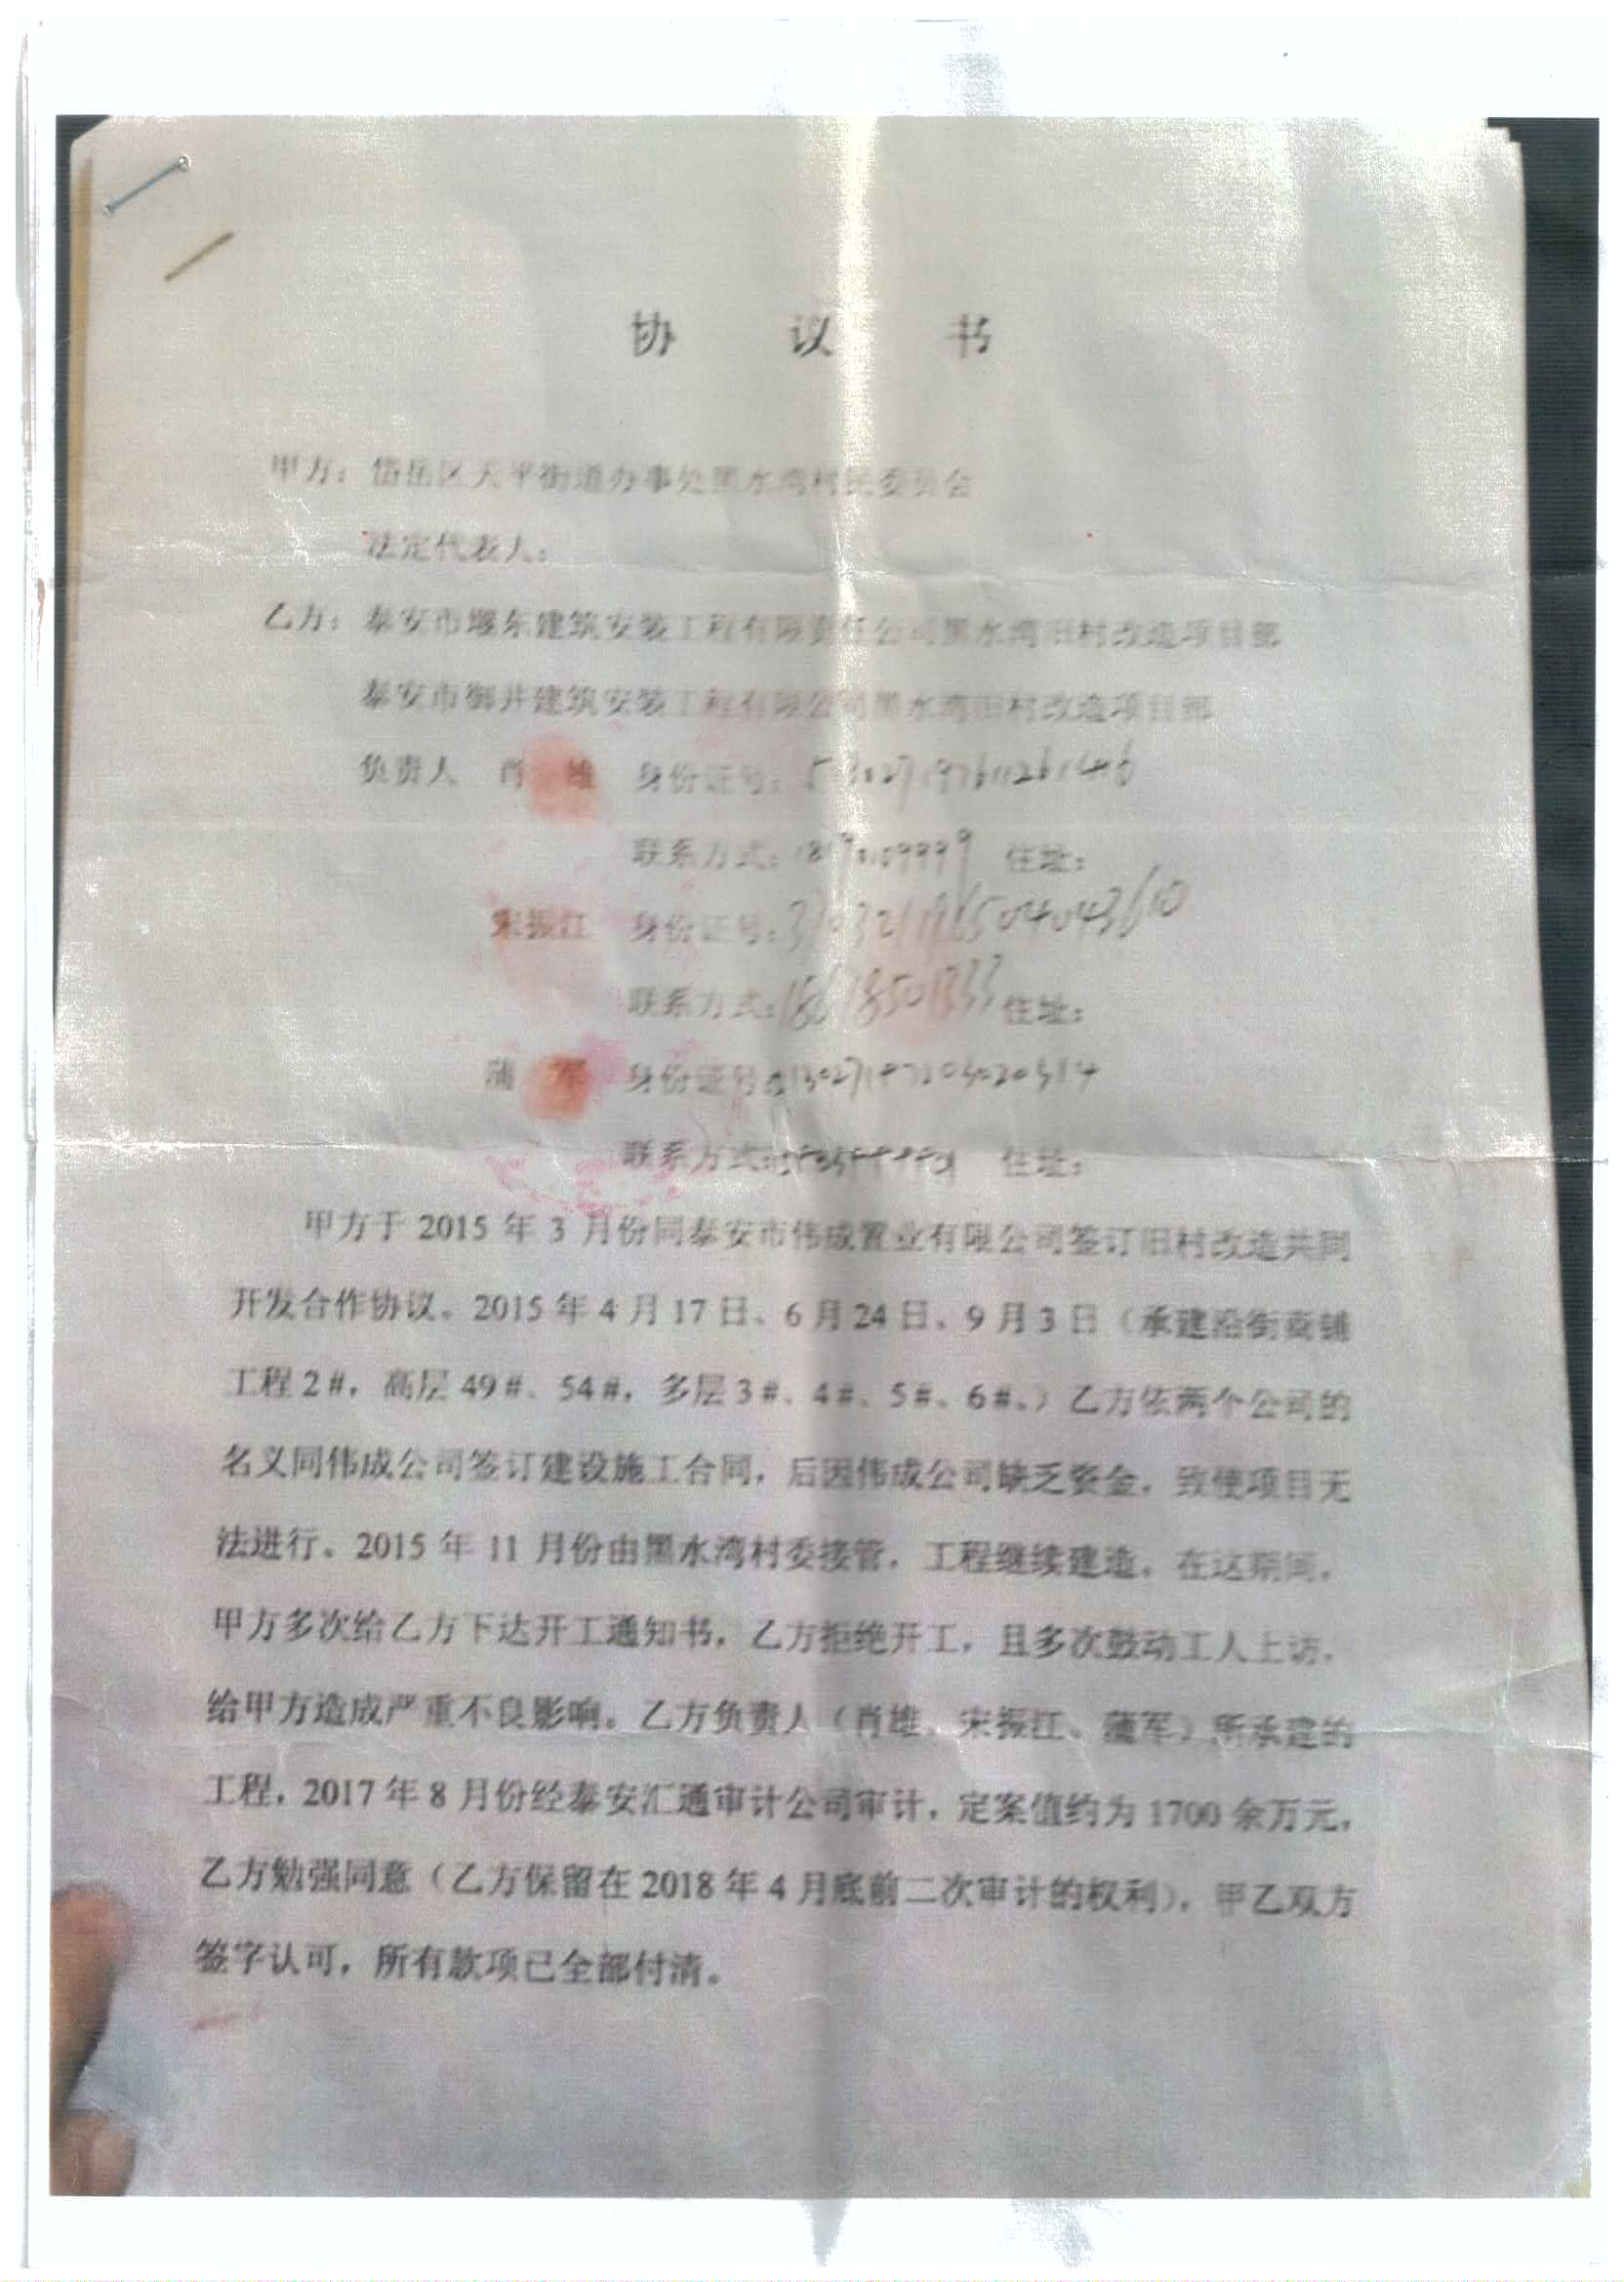 协 议 书
甲方：岱岳区天平街道办事处黑水湾村民委员会
法定代表人：
乙方：泰安市堰东建筑安装工程有限责任公司黑水湾旧村改造项目部
泰安市御井建筑安装工程有限公司黑水湾旧村改造项目部
负责人 肖 雄 身份证号：
联系方式： 住址：
宋振江 身份证号：
联系方式： 住址：
蒲 军 身份证号
联系方式： 住址：
甲方于 2015 年 3 月份同泰安市伟成置业有限公司签订旧村改造共同
开发合作协议。2015 年 4 月 17 日、6 月 24 日、9 月 3 日（承建沿街商铺
工程 2#，高层 49#、54#，多层 3#、4#、5#、6#。）乙方依两个公司的
名义同伟成公司签订建设施工合同，后因伟成公司缺乏资金，致使项目无
法进行。2015 年 11 月份由黑水湾村委接管，工程继续建造，在这期间，
甲方多次给乙方下达开工通知书，乙方拒绝开工，且多次鼓动工人上访，
给甲方造成严重不良影响。乙方负责人（肖雄、宋振江、蒲军）所承建的
工程，2017 年 8 月份经泰安汇通审计公司审计，定案值约为 1700 余万元，
乙方勉强同意（乙方保留在 2018 年 4 月底前二次审计的权利），甲乙双方
签字认可，所有款项已全部付清。